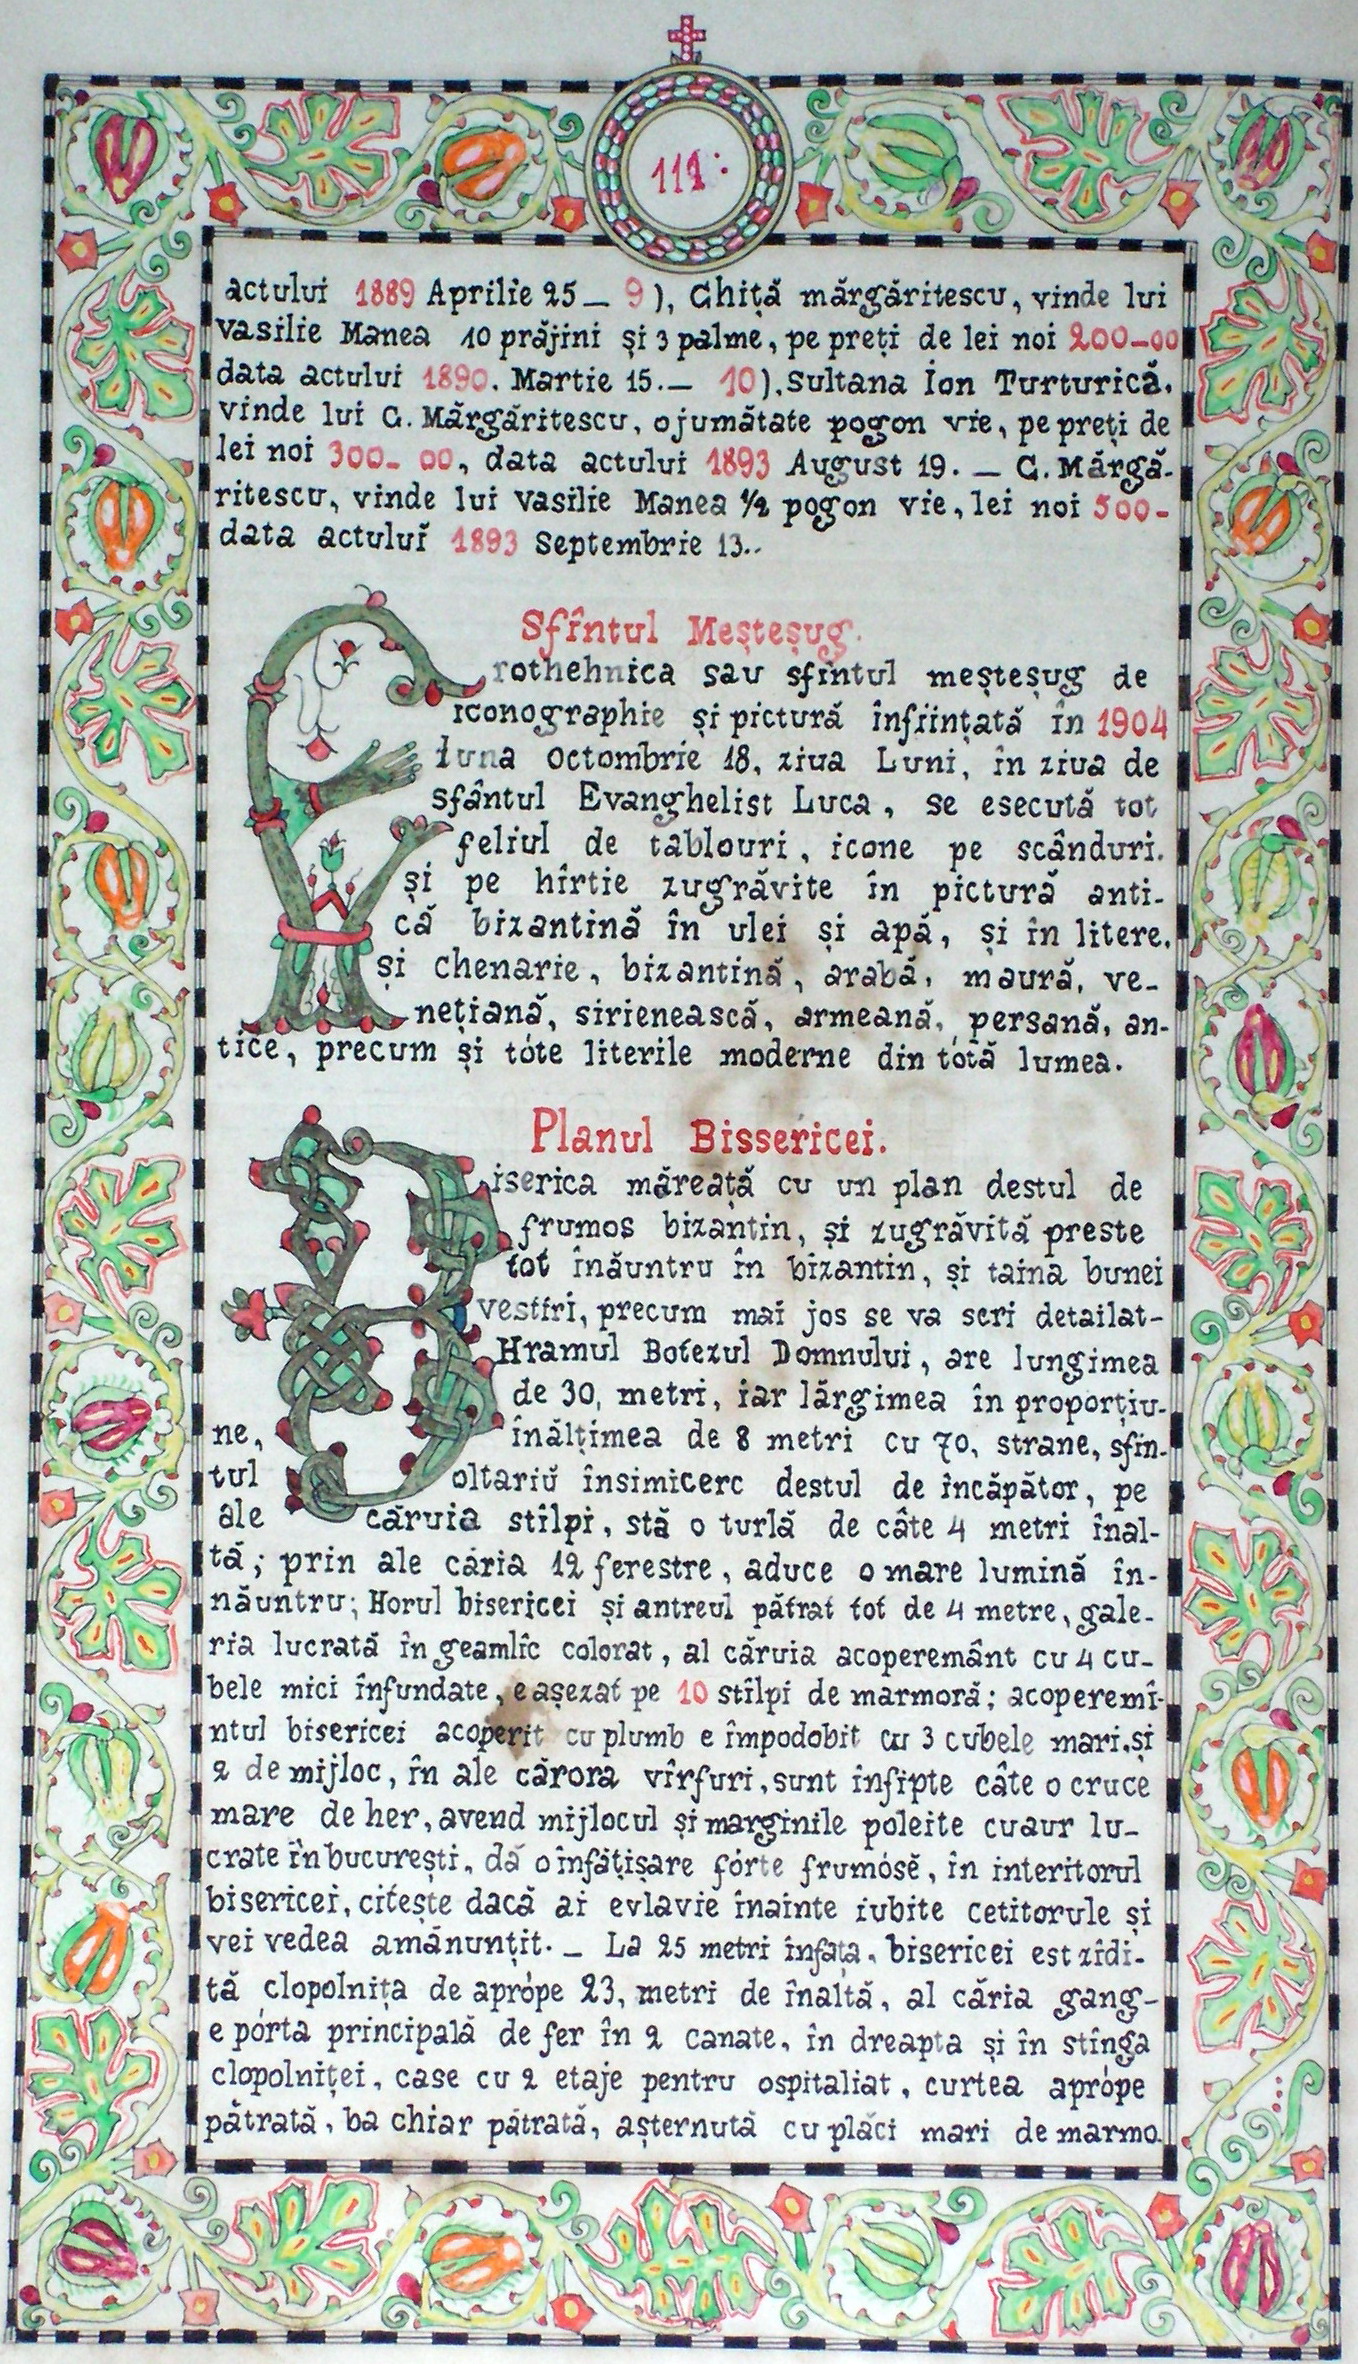 112:
actului 1889 Aprilie 25 _ 9), Ghiță mărgăritescu, vinde lui
vasilie Manea 10 prăjini și 3 palme, pe preți de lei noi 200-00
data actului 1890. Martie 15. _ 10). Sultana Ion Turturică.
vinde lui G. Mărgăritescu, o jumătate pogon vie, pe preți de
lei noi 300-00, data actului 1893 August 19. _ G. Mărgă-
ritescu, vinde lui vasilie Manea ½ pogon vie, lei noi 500-
data actuluĭ 1893 Septembrie 13..
Sfîntul Meșteșug.
Erothehnica sau sfintul meșteșug de
iconographie și pictură înființată în 1904
luna octombrie 18, ziua Luni, în ziua de
sfântul Evanghelist Luca, se esecută tot
feliul de tablouri, icone pe scânduri.
și pe hîrtie zugrăvite în pictură anti-
că bizantină în ulei și apă, și în litere.
și chenarie, bizantină, arabă, maură, ve-
nețiană, sirienească, armeană, persană, an-
tice, precum și tóte literile moderne din tótă lumea.
Planul Bissericei.
Biserica măreață cu un plan destul de
frumos bizantin, și zugrăvită preste
tot înăuntru în bizantin, și taina bunei
vestiri, precum mai jos se va scri detailat-
Hramul Botezul Domnului, are lungimea
de 30, metri, iar lărgimea în proporțiu-
ne, înălțimea de 8 metri cu 70, strane, sfîn-
tul oltariŭ însimicerc destul de încăpător, pe
ale căruia stîlpi, stă o turlă de câte 4 metri înal-
tă; prin ale căria 12 ferestre, aduce o mare lumină în-
năuntru; Horul bisericei și antreul pătrat tot de 4 metre, gale-
ria lucrată în geamlîc colorat, al căruia acoperemânt cu 4 cu-
bele mici înfundate, e așezat pe 10 stîlpi de marmoră; acoperemî-
ntul bisericei acoperit cu plumb e împodobit cu 3 cubele mari. și
2 de mijloc, în ale cărora vîrfuri, sunt înfipte câte o cruce
mare de her, avend mijlocul și marginile poleite cu aur lu-
crate în bucurești, dă o înfățișare fórte frumósĕ, în interitorul
bisericei, citește dacă ai evlavie înainte iubite cetitorule și
vei vedea amănunțit. _ La 25 metri înfața, bisericei est zîdi-
tă clopolnița de aprópe 23, metri de înaltă, al căria gang-
e pórta principală de fer în 2 canate, în dreapta și în stînga
clopolniței, case cu 2 etaje pentru ospitaliat, curtea aprópe
pătrată, ba chiar pătrată, așternută cu plăci mari de marmo.